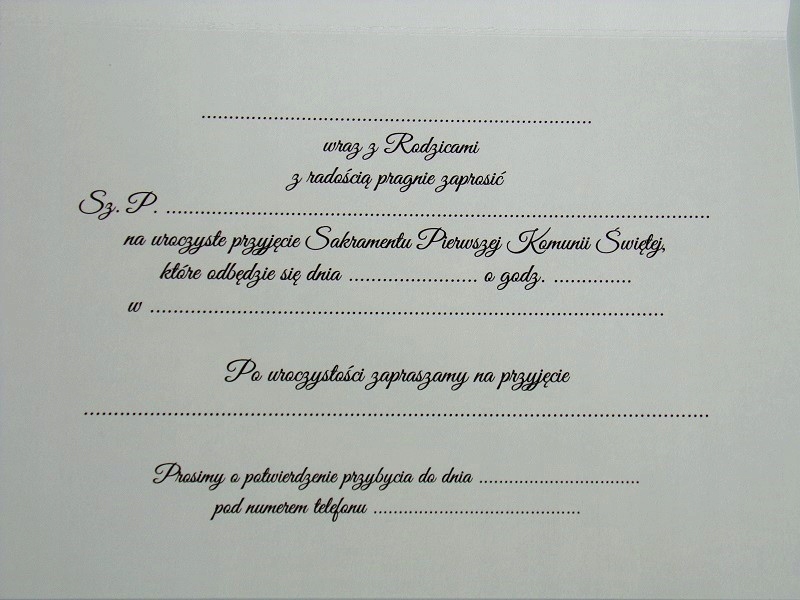 ..........................................................................
wraz z Rodzicami
z radością pragnie zaprosić
Sz. P. ......................................................................................................
na uroczyste przyjęcie Sakramentu Pierwszej Komunii Świętej,
które odbędzie się dnia ........................ o godz. ...............
w ................................................................................................
Po uroczystości zapraszamy na przyjęcie
......................................................................................................................
Prosimy o potwierdzenie przybycia do dnia ..............................
pod numerem telefonu .......................................